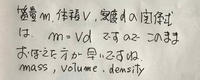 質量m, 体積V, 密度dの関係式
は、m=Vd ですので このまま
おぼえた方が早いですね
mass, volume, density